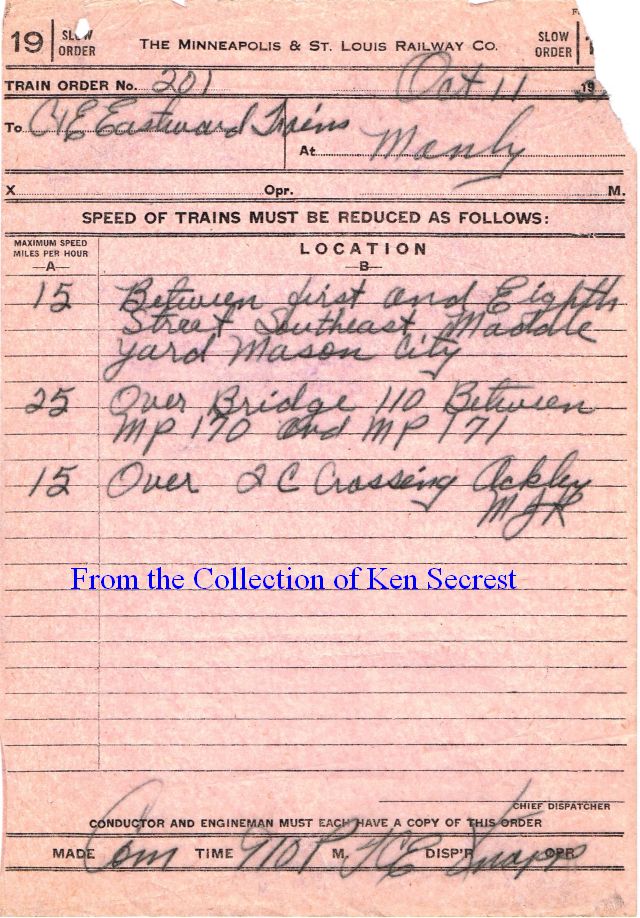 19 SLOW ORDER THE MINNEAPOLIS & ST. LOUIS RAILWAY CO. SLOW ORDER
TRAIN ORDER No. 201 Oct 11 19
To C&E Eastward Trains
At Manly
X Opr. M.
SPEED OF TRAINS MUST BE REDUCED AS FOLLOWS:
MAXIMUM SPEED MILES PER HOUR —A— LOCATION —B—
15 Between first and Eighth
Street Southeast
yard Mason City
25 Over Bridge 110 Between
MP 170 and MP 171
15 Over I C Crossing Ackley
MJR
From the Collection of Ken Secrest
CHIEF DISPATCHER
CONDUCTOR AND ENGINEMAN MUST EACH HAVE A COPY OF THIS ORDER
MADE Com TIME 910 P M. DISP'R Knapp OPR